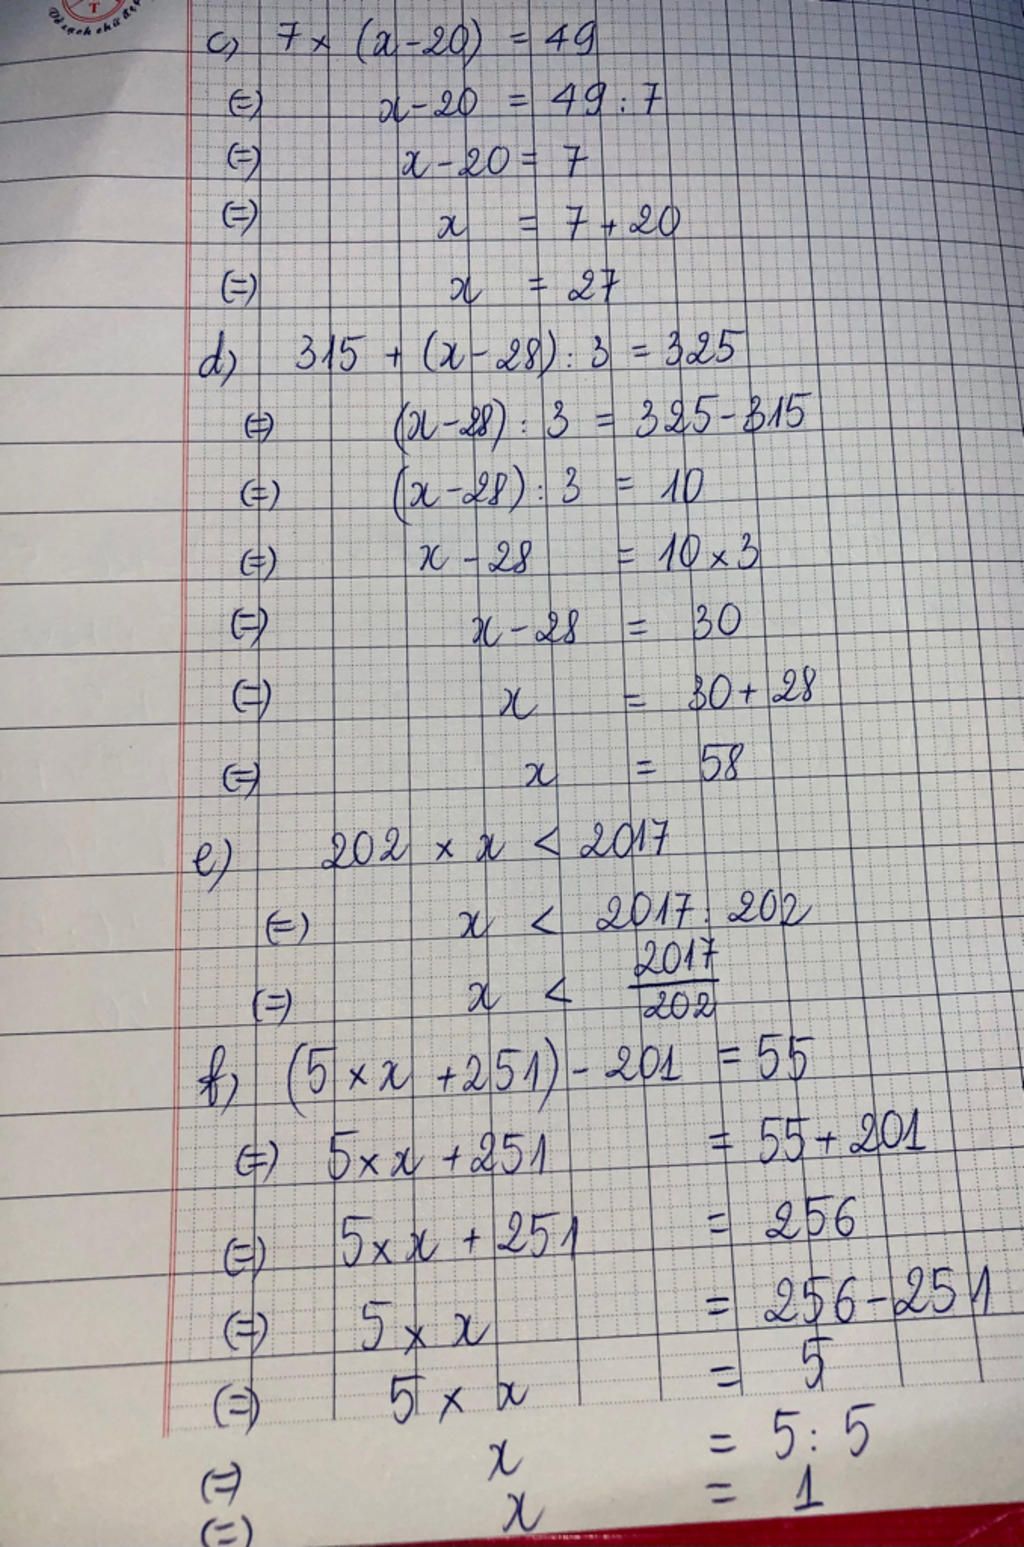 c) 7 × (x - 20) = 49
(=) x - 20 = 49 : 7
(=) x - 20 = 7
(=) x = 7 + 20
(=) x = 27
d) 315 + (x - 28) : 3 = 325
(=) (x - 28) : 3 = 325 - 315
(=) (x - 28) : 3 = 10
(=) x - 28 = 10 × 3
(=) x - 28 = 30
(=) x = 30 + 28
(=) x = 58
e) 202 × x < 2017
(=) x < 2017 : 202
(=) x < 2017/202
f) (5 × x + 251) - 201 = 55
(=) 5 × x + 251 = 55 + 201
(=) 5 × x + 251 = 256
(=) 5 × x = 256 - 251
(=) 5 × x = 5
(=) x = 5 : 5
(=) x = 1